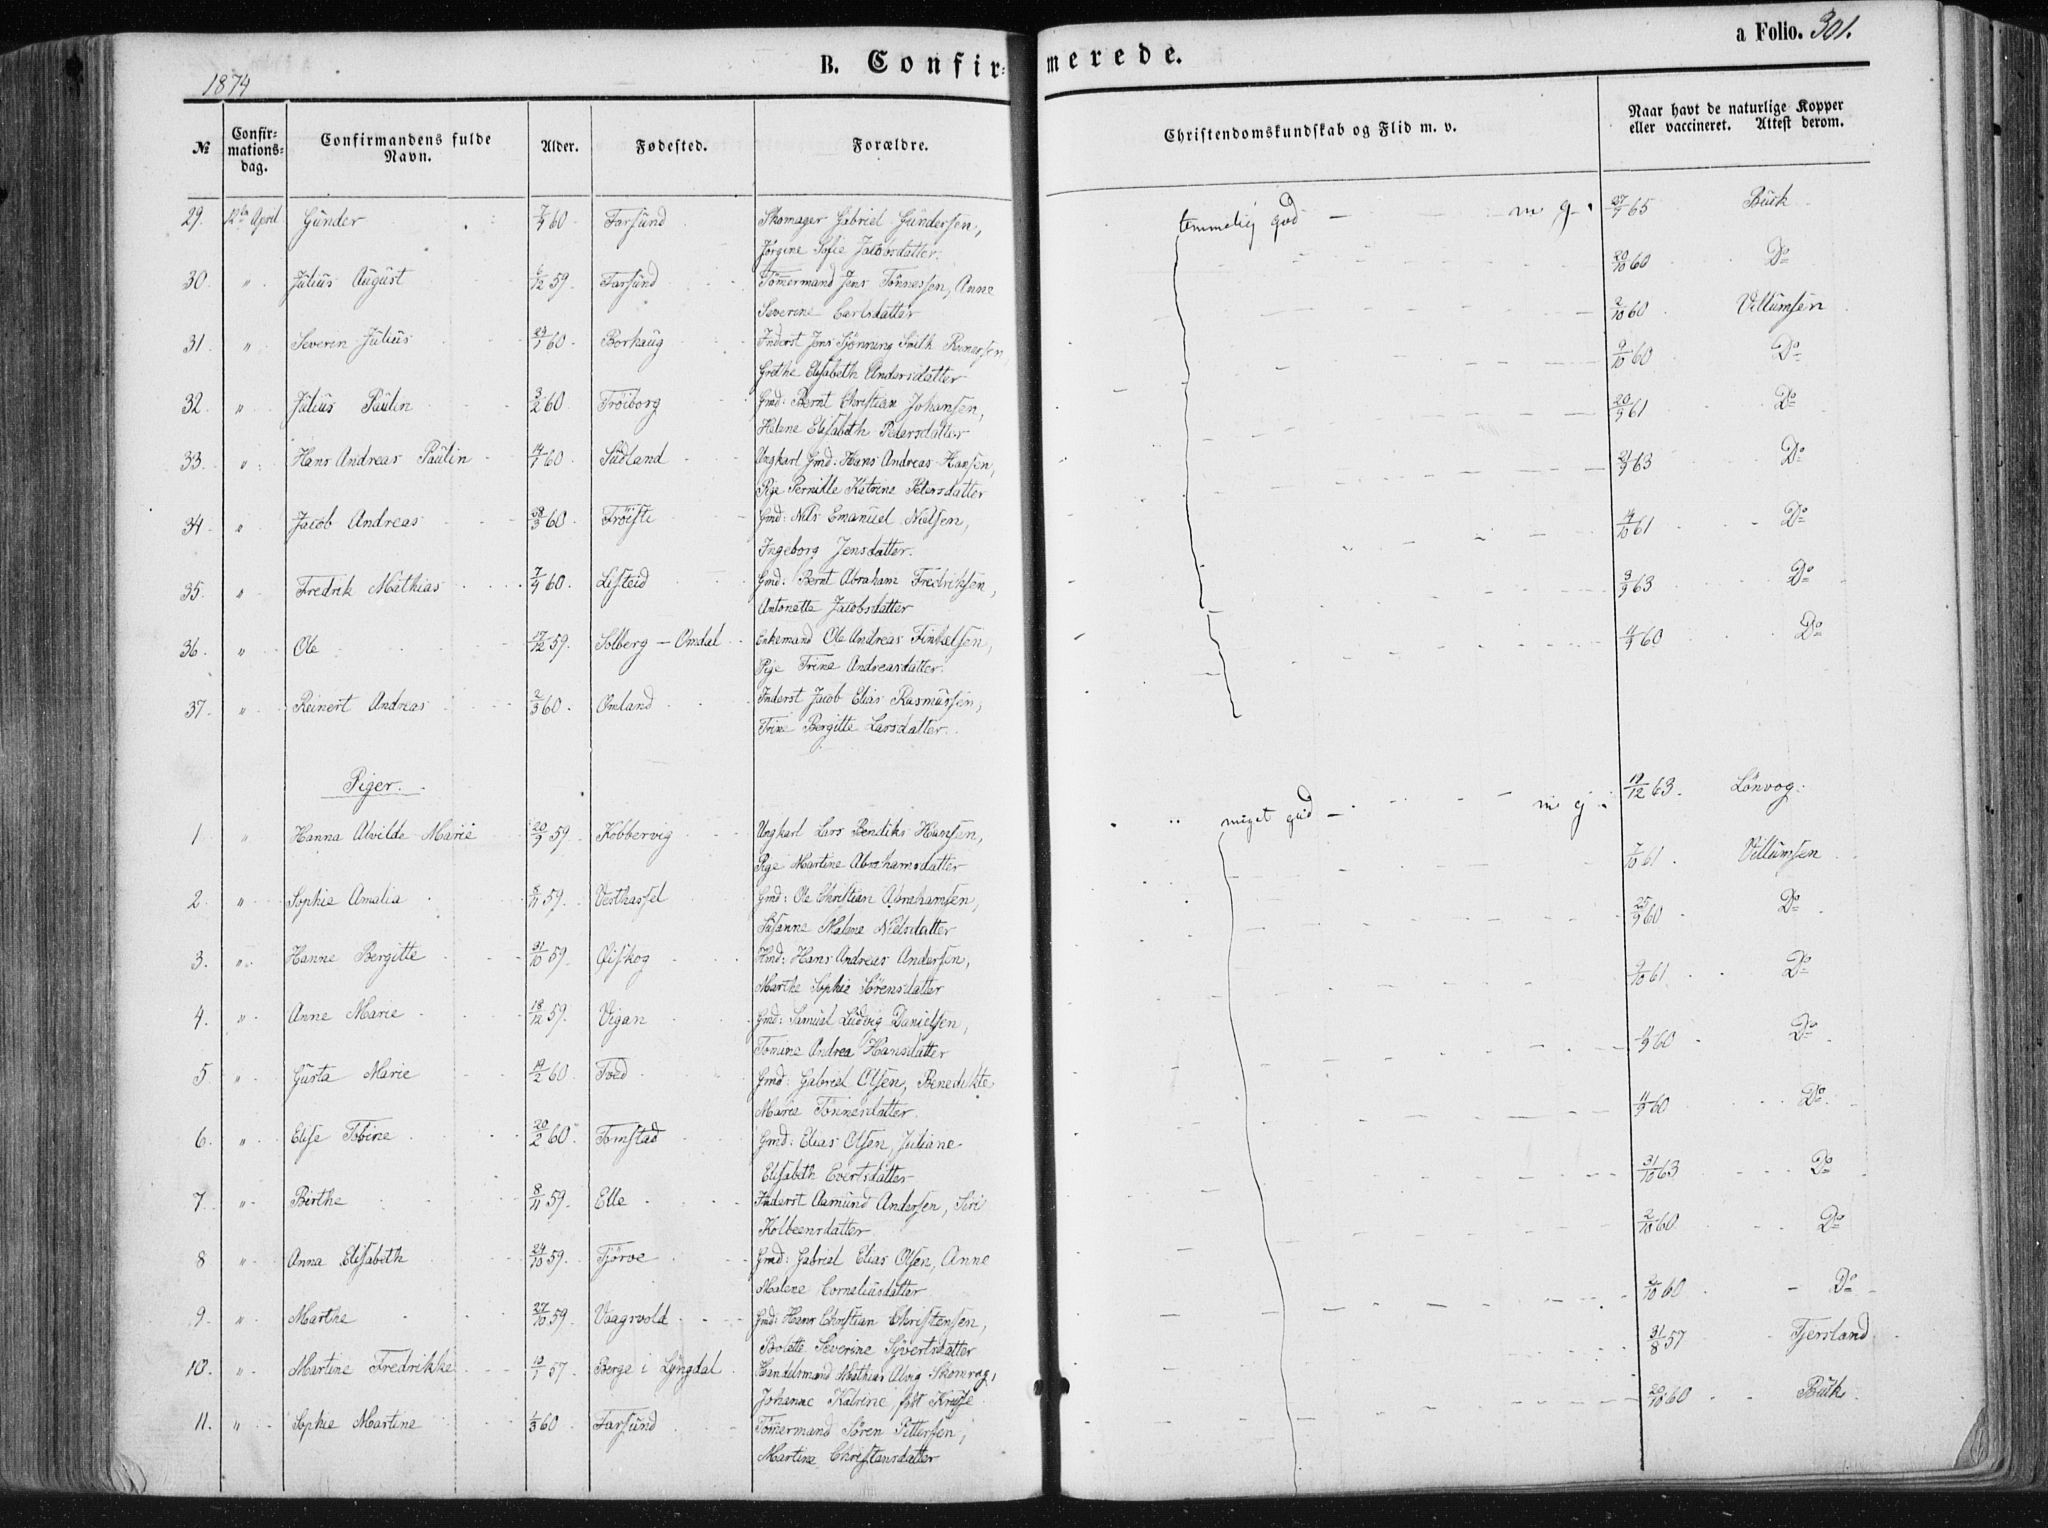 1874
B. Confirmerede.
a Folio. 301.
№ Confirmationsdag. Confirmandens fulde Navn. Alder. Fødested. Forældre. Christendomskundskab og Flid m. v. Naar havt de naturlige Kopper eller vaccineret. Attest derom.
29. 12te April Gunder 7/4 60 Farsund Skomager Gabriel Gundersen, temmelig god m g. 27/9 65 Buch
Jørgine Sofie Jacobsdatter.
30. " Julius August 1/12 59. Farsund Tømermand Jens Tønnessen, Anne 20/10 60 Do
Severine Carlsdatter
31 " Severin Julius 23/1 60. Borhaug Inderst Jens Tjønning Smith Reinersen, 2/10 60 Villumsen
Grethe Elisabeth Andersdatter
32. " Julius Paulin 3/2 60. Frøiborg Gmd: Bernt Christian Johansen, 9/10 60 Do
Helene Elisabeth Pedersdatter
33. " Hans Andreas Paulin 14/1 60. Sudland Ungkarl Gmd: Hans Andreas Hansen, 20/9 61 Do
Pige Pernille Katrine Petersdatter
34 " Jacob Andreas 28/3 60. Frøiste Gmd: Nils Emanuel Nielsen, 21/9 63 Do
Ingeborg Jensdatter.
35. " Fredrik Mathias 7/4 60. Listeid Gmd: Bernt Abraham Fredriksen, 14/10 61 Do
Antonette Jacobsdatter
36. " Ole 17/12 59. Solberg - Omdal Enkemand Ole Andreas Finkelsen, 3/9 63 Do
Pige Trine Andreasdatter.
37. " Reinert Andreas 2/3 60. Omland Inderst Jacob Elias Rasmussen, 4/9 60 Do
Trine Bergitte Larsdatter.
Piger.
1 " Hanna Alvilde Marie 20/9 59. Kobbervig Ungkarl Lars Bendiks Hansen, meget god m g. 19/12 63. Lønvog.
Pige Martine Abrahamsdatter
2. " Sophie Amalia 8/11 59. Vesthassel Gmd: Ole Christian Abrahamsen, 7/10 61. Villumsen
Susanne Malene Nielsdatter
3. " Hanne Bergitte 31/10 59. Øiskog Hmd: Hans Andreas Andersen, 25/9 60 Do
Marthe Sophie Sørensdatter
4. " Anne Marie 18/12 59. Vigan Gmd: Samuel Ludvig Danielsen, 9/10 61. Do
Tomine Andrea Hansdatter
5 " Gusta Marie 19/2 60. Tved Gmd: Gabriel Olsen, Benedikte 4/9 60 Do
Marie Tønnesdatter.
6. " Elise Tobine 20/2 60 Tomstad Gmd: Elias Olsen, Juliane 11/9 60 Do
Elisabeth Evertsdatter
7. " Birthe 8/11 59. Elle Inderst Aamund Andersen, Siri 31/10 63 Do
Kolbeensdatter
8 " Anna Elisabeth 24/10 59. Tjørve Gmd: Gabriel Elias Olsen, Anne 2/10 60. Do
Malene Corneliusdatter
9. " Marthe 27/10 59. Vaagsvold Gmd: Hans Christian Christensen, 2/10 60 Do
Bolette Severine Syvertsdatter
10. " Martine Fredrikke 19/1 57. Berge i Lyngdal Handelsmand Mathias Alvig Skomrag, 31/8 57 Tjersland
Johanne Katrine født Kruse
11. " Sophie Martine 1/3 60. Farsund Tømermand Søren Pettersen, 20/10 60 Buch
Martine Christansdatter